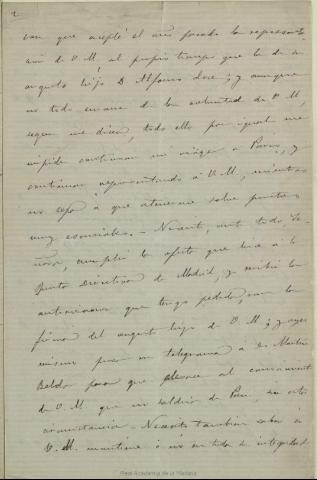 2
que acepté el año pasado la representa
ción de V. M. al propio tiempo que la de su
augusto hijo D. Alfonso doce; y aunque
no todo emane de la voluntad de V. M.,
segun me dicen, todo ello por igual me
impide continuar mi viaje a Paris, y
continuar representando á V. M., mientras
no sepa á que atenerme sobre puntos
muy esenciales. - Necesito, ante todo, Se
ñora, cumplir la oferta que hice á la
Junta Directiva de Madrid, y recibir la
autorizacion que tengo pedida, con la
firma del augusto hijo de V. M.; y ayer
mismo puse un telegrama á D. Martin
Belda para que
de V. M. que no saldria de Paris, en estas
circunstancias. - Necesito tambien saber si
V. M. mantiene ó nó en toda su integridad
Real Academia de la Historia